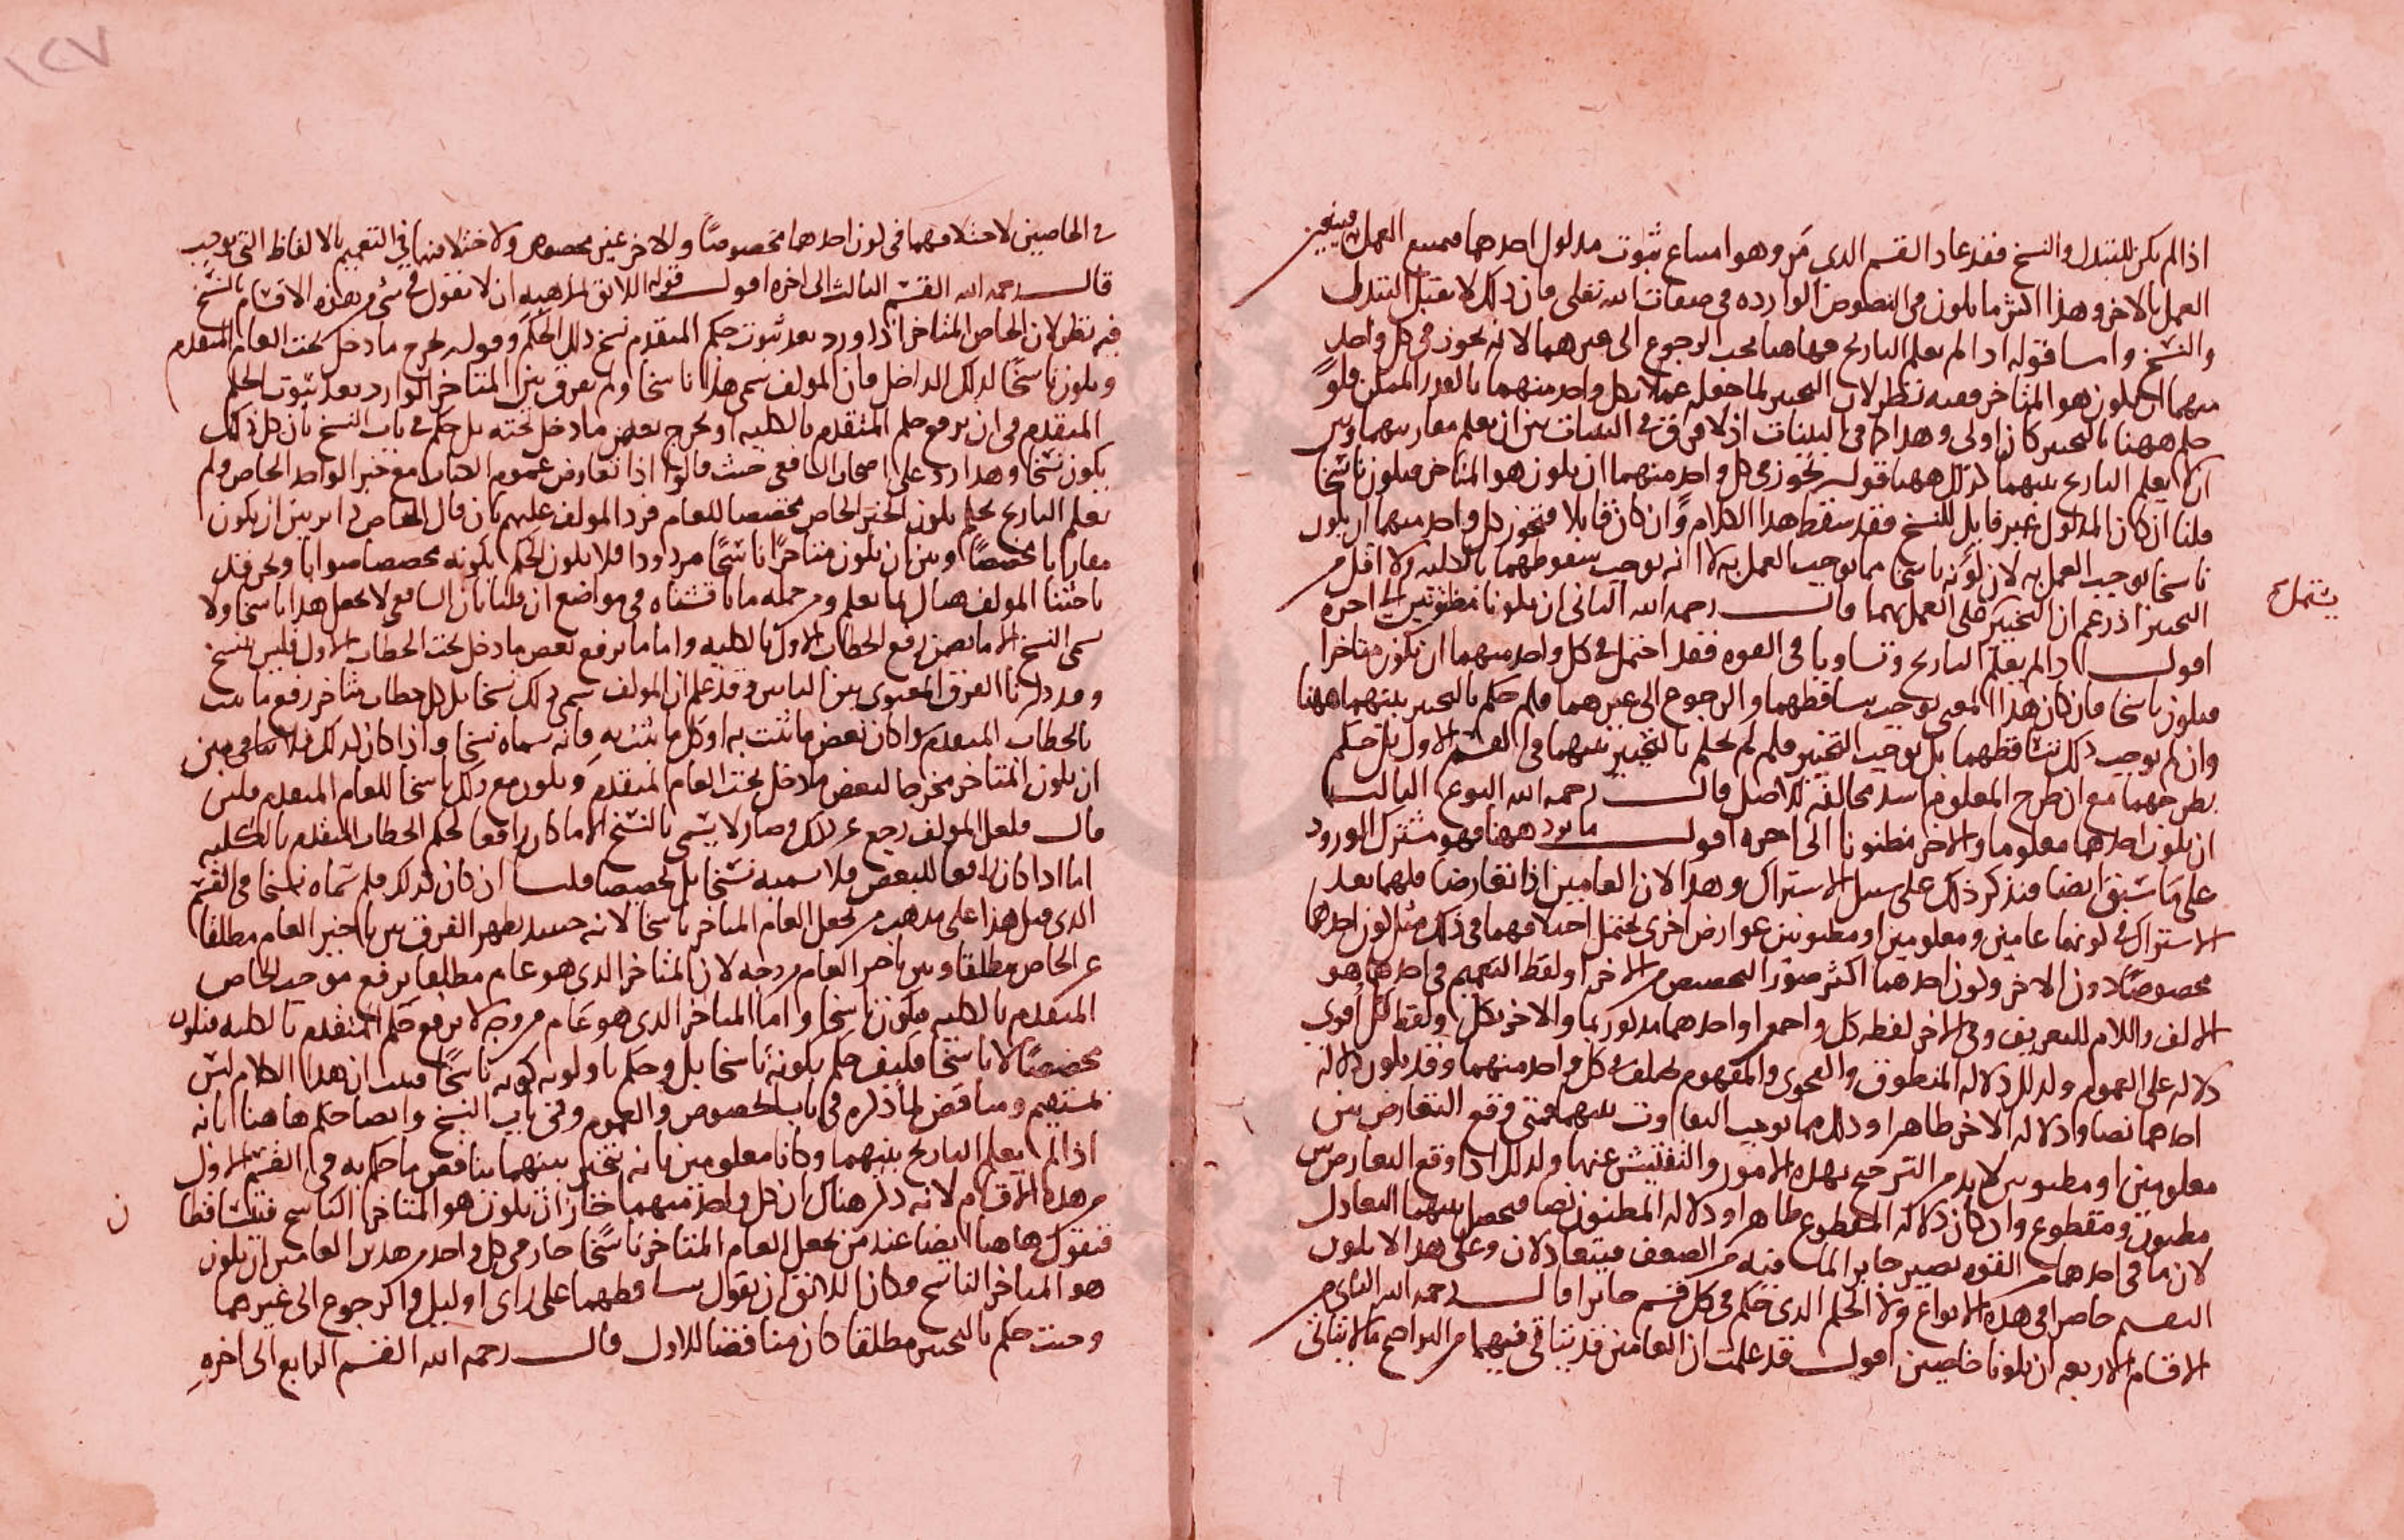 اذا لم يكن للتبدل والنسخ فقد عاد القسم الذي مر وهو امتناع ثبوت مدلول احدهما فيمتنع العمل به فيتعين
العمل بالاخر وهذا اكثر ما يكون في النصوص الواردة في صفات الله تعالى فان ذلك لا يقبل التبدل
والنسخ واما قوله اذا لم يعلم التاريخ فهاهنا يجب الرجوع الى غيرهما لانه يجوز في كل واحد
منهما ان يكون هو المتاخر ففيه نظر لان التخيير لما جعله عملا بكل واحد منهما بالقدر الممكن فلو
حكم ههنا بالتخيير كان اولى وهذا كما في البينات اذ لا فرق في البينات بين ان يعلم تقارنهما وبين
ان لا يعلم التاريخ بينهما كذلك ههنا قوله يجوز في كل واحد منهما ان يكون هو المتاخر فيكون ناسخا
قلنا ان كان المدلول غير قابل للنسخ فقد سقط هذا الكلام وان كان قابلا فتجوز كل واحد منهما ان يكون
ناسخا يوجب العمل به لان كونه ناسخا مما يوجب العمل به لا انه يوجب سقوطهما بالكلية ولا اقل من
التخيير اذ زعم ان التخيير على العمل بهما قال رحمه الله الثاني ان يكونا مظنونين الى اخره
اقول اذا لم يعلم التاريخ وتساويا في القوة فقد احتمل في كل واحد منهما ان يكون متاخرا
فيكون ناسخا فان كان هذا المعنى يوجب تساقطهما والرجوع الى غيرهما فلم حكم بالتخيير بينهما ههنا
وان لم يوجب ذلك تساقطهما بل يوجب التخيير فلم لم يحكم بالتخيير بينهما في القسم الاول بل حكم
بطرحهما مع ان طرح المعلوم اشد مخالفة للاصل قال رحمه الله النوع الثالث
ان يكون احدهما معلوما والاخر مظنونا الى اخره اقول ما يرد ههنا فهو مشترك الورود
على ما سبق ايضا فنذكر ذلك على سبيل الاشتراك وهذا لان العامين اذا تعارضا فلهما بعد
الاشتراك في كونهما عامين ومعلومين او مظنونين عوارض اخرى يحتمل اختلافهما في ذلك مثل كون احدهما
مخصوصا دون الاخر وكون احدهما اكثر صور التخصيص من الاخر او لفظ التعميم في احدهما هو
الالف واللام للتعريف وفي الاخر لفظه كل واجمع او احدهما مذكور بما والاخر بكل ولفظ كل اقوى
دلالة على العموم وكذلك دلالة المنطوق والفحوى والمفهوم تختلف في كل واحد منهما وقد يكون دلالة
احدهما نصا ودلالة الاخر ظاهرا وذلك مما يوجب التفاوت بينهما فمتى وقع التعارض بين
معلومين او مظنونين لا بد من الترجيح بهذه الامور والتفتيش عنها وكذلك اذا وقع التعارض بين
مظنون ومقطوع وان كان دلالة المقطوع ظاهرا ودلالة المظنون نصا فيحصل بينهما التعادل
لان ما في احدهما من القوة يصير جابرا لما فيه من الضعف فيتعادلان وعلى هذا لا يكون
التقسيم حاصرا في هذه الانواع ولا الحكم الذي حكم في كل قسم جائزا قال رحمه الله الثاني من
الاقسام الاربعة ان يكونا خاصين اقول قد علمت ان العامين قد يتاتى فيهما من التراجيح ما لا يتاتى
يشتمل
١٢٧
في الخاصين لاختلافهما في كون احدهما مخصوصا والاخر غير مخصوص ولاختلافهما في التعميم بالالفاظ التي توجب
قال رحمه الله القسم الثالث الى اخره اقول قوله اللائق بمذهبه ان لا نقول في شيء من هذه الاقسام بالنسخ
فيه نظر لان الخاص المتاخر اذا ورد بعد ثبوت حكم المتقدم نسخ ذلك الحكم وقوله يخرج ما دخل تحت العام المتقدم
ويكون ناسخا لذلك الداخل فان المولف سمى هذا ناسخا ولم يفرق بين المتاخر الوارد بعد ثبوت الحكم
المتقدم في ان يرفع حكم المتقدم بالكلية او يخرج بعض ما دخل تحته بل حكم في باب النسخ بان كل ذلك
يكون نسخا وهذا رد على اصحاب الشافعي حيث قالوا اذا تعارض عموم الكتاب مع خبر الواحد الخاص ولم
يعلم التاريخ يحكم بكون الخبر الخاص مخصصا للعام فرد المولف عليهم بان قال الخاص دائر بين ان يكون
مقارنا مخصصا وبين ان يكون متاخرا ناسخا مردودا فلا يكون الحكم بكونه مخصصا صوابا ونحن فقد
باحثنا المولف هناك بما يعلم ومن جملة ما ناقشناه في مواضع ان قلنا بان الشافعي لا يجعل هذا ناسخا ولا
سمى النسخ الا ما تضمن رفع الخطاب الاول بالكلية واما ما يرفع بعض ما دخل تحت الخطاب الاول فليس بنسخ
وقد ذكرنا الفرق المعنوي بين البابين وقد علم ان المولف سمى ذلك نسخا بل كل خطاب متاخر رفع ما ثبت
بالخطاب المتقدم وكان بعض ما ثبت به او كل ما ثبت به فانه سماه نسخا واذا كان كذلك فلا تنافي بين
ان يكون المتاخر مخرجا لبعض ما دخل تحت العام المتقدم ويكون مع ذلك ناسخا للعام المتقدم فلئن
قال فلعل المولف رجع عن ذلك وصار لا يسمي بالنسخ الا ما كان رافعا لحكم الخطاب المتقدم بالكلية
اما اذا كان رافعا للبعض فلا نسميه نسخا بل تخصيصا قلنا ان كان كذلك فلم سماه نسخا في القسم
الذي قبل هذا على مذهب من يجعل العام المتاخر ناسخا لانه حينئذ يظهر الفرق بين تاخير العام مطلقا
عن الخاص مطلقا وبين تاخير العام من وجه لان المتاخر الذي هو عام مطلقا يرفع موجب الخاص
المتقدم بالكلية فيكون ناسخا واما المتاخر الذي هو عام من وجه لا يرفع حكم المتقدم بالكلية فيكون
مخصصا لا ناسخا فكيف حكم بكونه ناسخا بل وحكم باولوية كونه ناسخا فثبت ان هذا الكلام ليس
بمستقيم ومناقض لما ذكره في باب الخصوص والعموم وفي باب النسخ وايضا حكم هاهنا بانه
اذا لم يعلم التاريخ بينهما وكانا معلومين بانه تخيير بينهما يناقض ما حكم به في القسم الاول
من هذه الاقسام لانه ذكر هناك ان كل واحد منهما جاز ان يكون هو المتاخر الناسخ فتساقطا
فنقول هاهنا ايضا عند من يجعل العام المتاخر ناسخا جاز في كل واحد من هذين العامين ان يكون
هو المتاخر الناسخ فكان اللائق ان يقول تساقطهما على راي او ليل والرجوع الى غيرهما
وحيث حكم بالتخيير مطلقا كان مناقضا للاول قال رحمه الله القسم الرابع الى اخره
ن